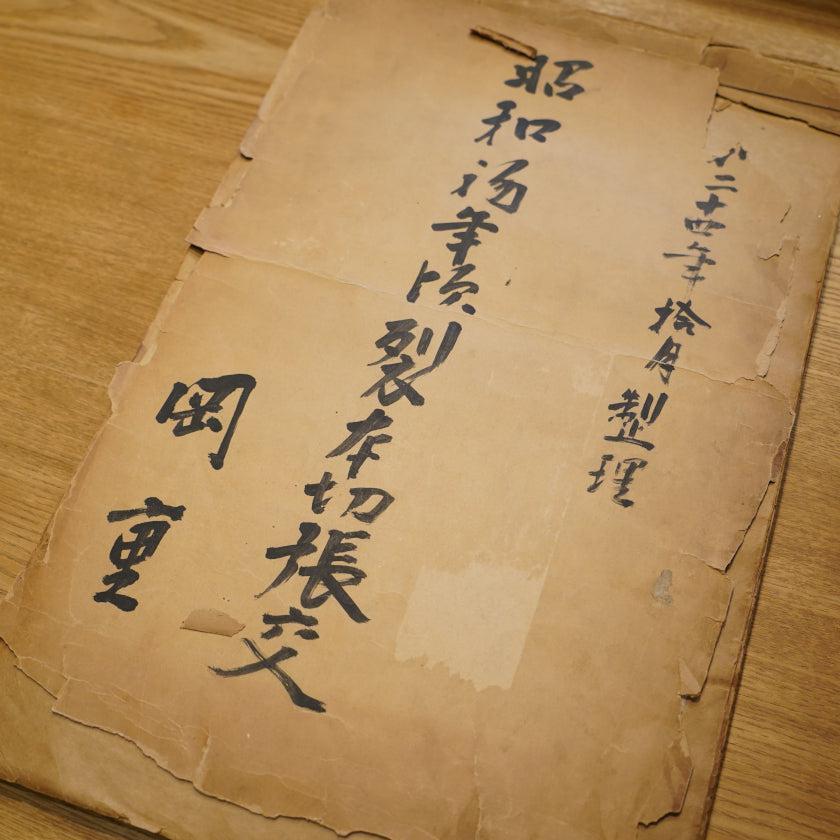 二十四年拾月整理
昭和初年頃裂本切張交
岡重